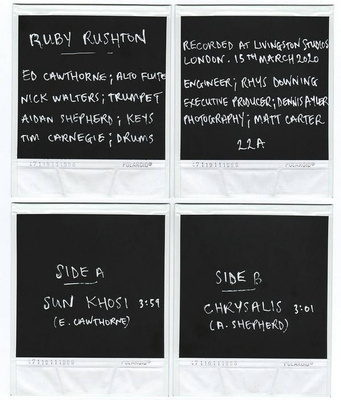 RUBY RUSHTON
ED CAWTHORNE; ALTO FLUTE
NICK WALTERS; TRUMPET
AIDAN SHEPHERD; KEYS
TIM CARNEGIE; DRUMS
POLAROID®
RECORDED AT LIVINGSTON STUDIOS
LONDON. 15TH MARCH 2020
ENGINEER; RHYS DOWNING
EXECUTIVE PRODUCER; DENNIS AYLER
PHOTOGRAPHY; MATT CARTER
22A
POLAROID®
SIDE A
SUN KHOSI 3:59
(E. CAWTHORNE)
POLAROID®
SIDE B
CHRYSALIS 3:01
(A. SHEPHERD)
POLAROID®